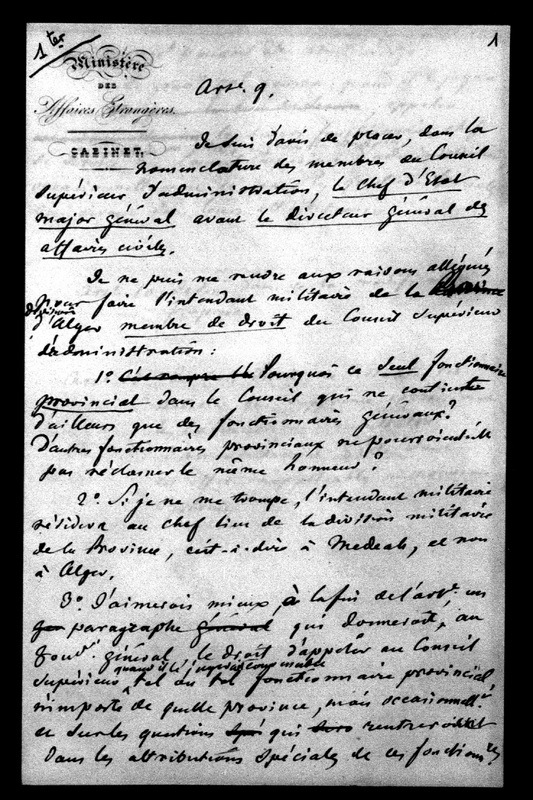 1 ter
1
Ministère
DES
Affaires Etrangères.
CABINET
Art. 9.
Je suis d'avis de placer, dans la
nomenclature des membres du Conseil
Supérieur d'administration, le chef d'Etat
major général avant le directeur général des
affaires civiles.
Je ne puis me rendre aux raisons alléguées
pour faire l'intendant militaire de la province
division
d'Alger membre de droit du Conseil Supérieur
d'administration :
1° Pourquoi ce seul fonctionnaire
provincial dans le Conseil qui ne contient
d'ailleurs que des fonctionnaires généraux ?
D'autres fonctionnaires provinciaux ne pourroient-ils
pas réclamer le même honneur ?
2°. Si je ne me trompe, l'intendant militaire
résidera au chef lieu de la division militaire
de la Province, c'est-à-dire à Medeah, et non
à Alger.
3° J'aimerois mieux, à la fin de l'art. un
paragraphe général qui donneroit, au
Gouv.r général, le droit d'appeler au Conseil
quand il le jugeroit convenable
Supérieur tel ou tel fonctionnaire provincial
n'importe de quelle province, mais occasionnell.t
et sur les questions qui rentreroient
dans les attributions spéciales de ces fonctionn.res